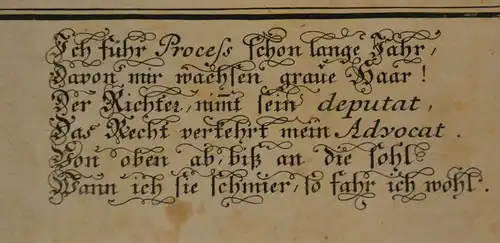 Ich führ Process schon lange Jahr,
Davon mir wachsen graue Haar!
Der Richter, nim̅t sein deputat,
Das Recht verkehrt mein Advocat.
Von oben ab, biß an die sohl
Wann ich sie schmier, so fahr ich wohl.